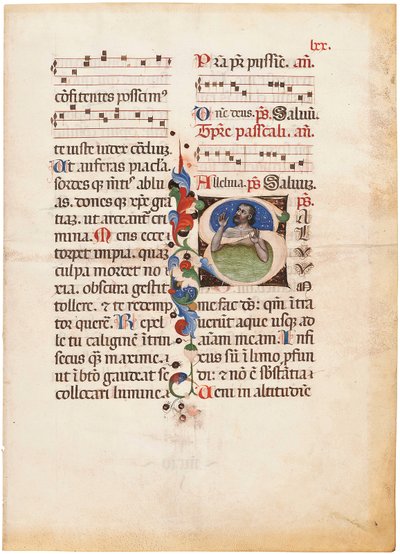 lxx.
cōfitentes poscim⁹
te iuste iudex cordiuz.
Ut auferas piacla.
sordes q; mētis ablu
as. dones q; xp̄e gra
tiaz. ut arceant̄ cri
mina. Mens ecce
torpet impia. quaz
culpa mordet no
xia. obscura gestit
tollere. & te redemp
tor querē. Repel
le tu caliginē ītrin
secus q̄ maxime.
ut ī bt̄o gaudeat se
collocari lumine.
Prā pr̄ pijssīe. an̄.
Dn̄e deus. p̄s. Saluū.
Tpr̄e pascali. an̄.
Alleluia. p̄s Saluuz.
p̄s.
SALVVM
me fac d̄s: qm̄ ītra
uerūt aque usq; ad
aīam meam. Infi
xus sū ī limo p̄fun
di: & nō ē sb̄stātia
Ueni in altitudinē